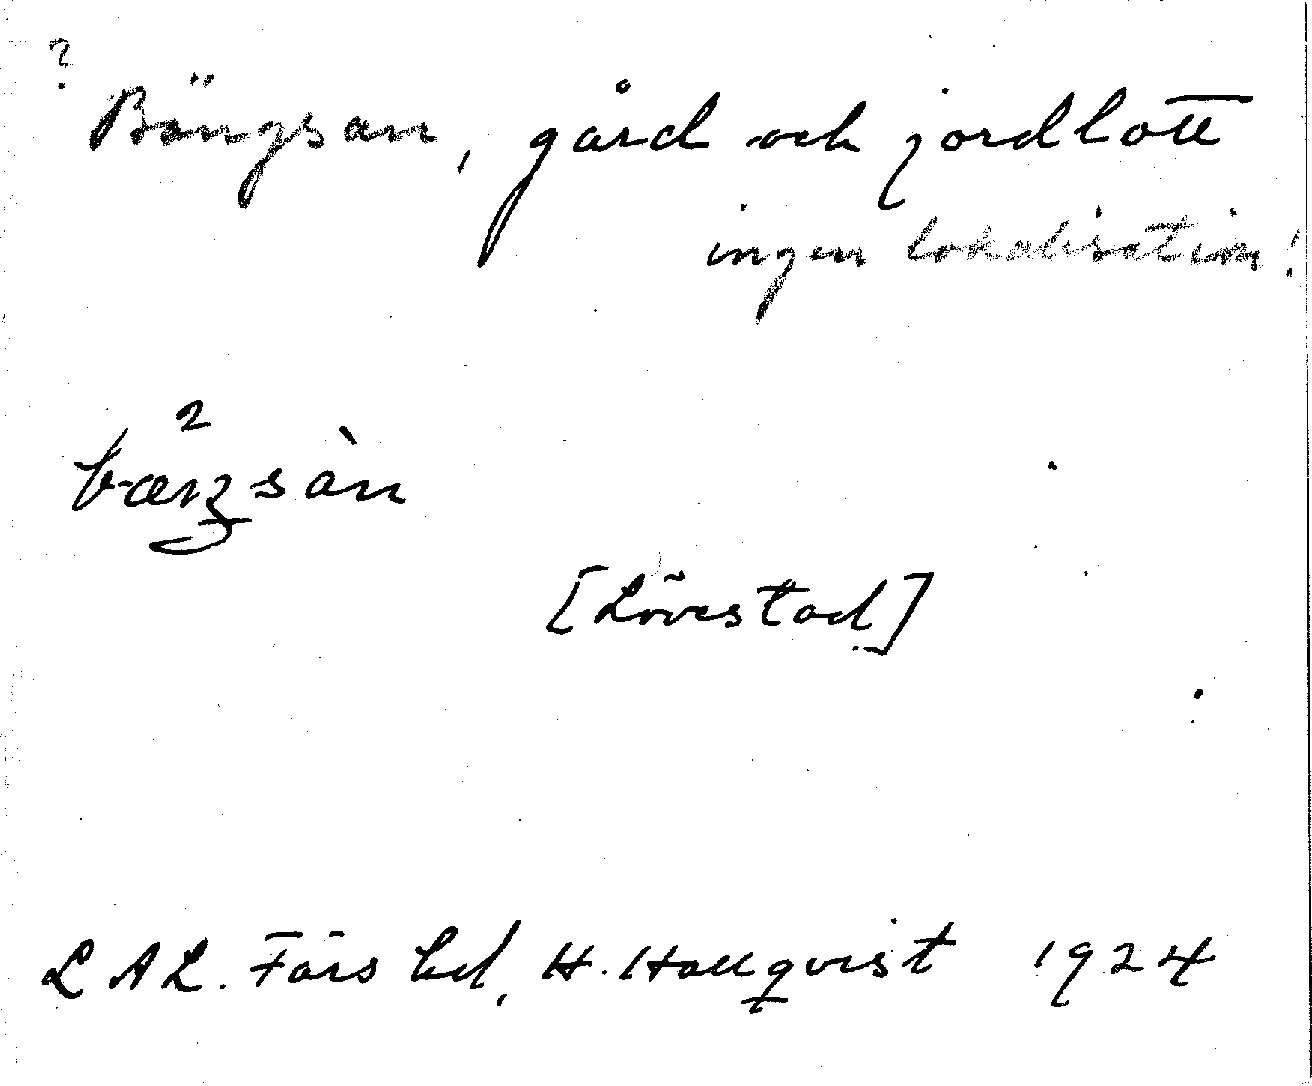 ?
Bängsan, gård och jordlott
ingen lokalisation!
2
[Lövestad]
LAL. Färs hd, H. Hallqvist 1924